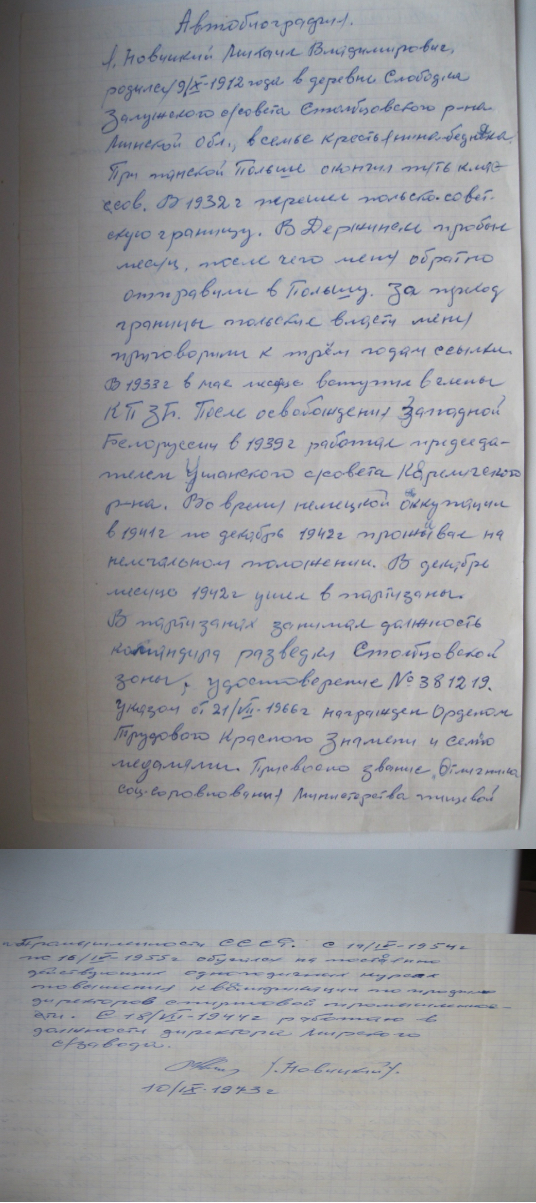 Автобиография.
Я, Новицкий Михаил Владимирович,
родился 9/X-1912 года в деревне Слободка
Залужского с/совета Столбцовского р-на
Минской обл., в семье крестьянина-бедняка.
При панской Польше окончил пять клас-
сов. В 1932 г перешел польско-совет-
скую границу. В Держинске пробыл
месяц, после чего меня обратно
отправили в Польшу. За приход
границы польские власти меня
приговорили к трём годам ссылки.
В 1933 г в мае месяце вступил в члены
КПЗБ. После освобождения Западной
Белоруссии в 1939 г работал председа-
телем Ушанского с/совета Кареличского
р-на. Во время немецкой оккупации
в 1941 г по декабрь 1942 г проживал на
нелегальном положении. В декабре
месяце 1942 г ушел в партизаны.
В партизанах занимал должность
командира разведки Столбцовской
зоны, удостоверение № 381219.
Указом от 21/VII-1966 г награжден Орденом
Трудового Красного Знамени и семью
медалями. Присвоено звание „Отличника
соц-соревнования Министерства пищевой
Промышленности СССР. С 19/IX-1954 г
по 16/IX-1955 г обучался на постоянно
действующих одногодичных курсах
повышения квалификации по
директоров спиртовой промышленно-
сти. С 18/VII-1944 г работаю в
должности директора Мирского
с/завода.
/Новицкий/.
10/IX-1973 г